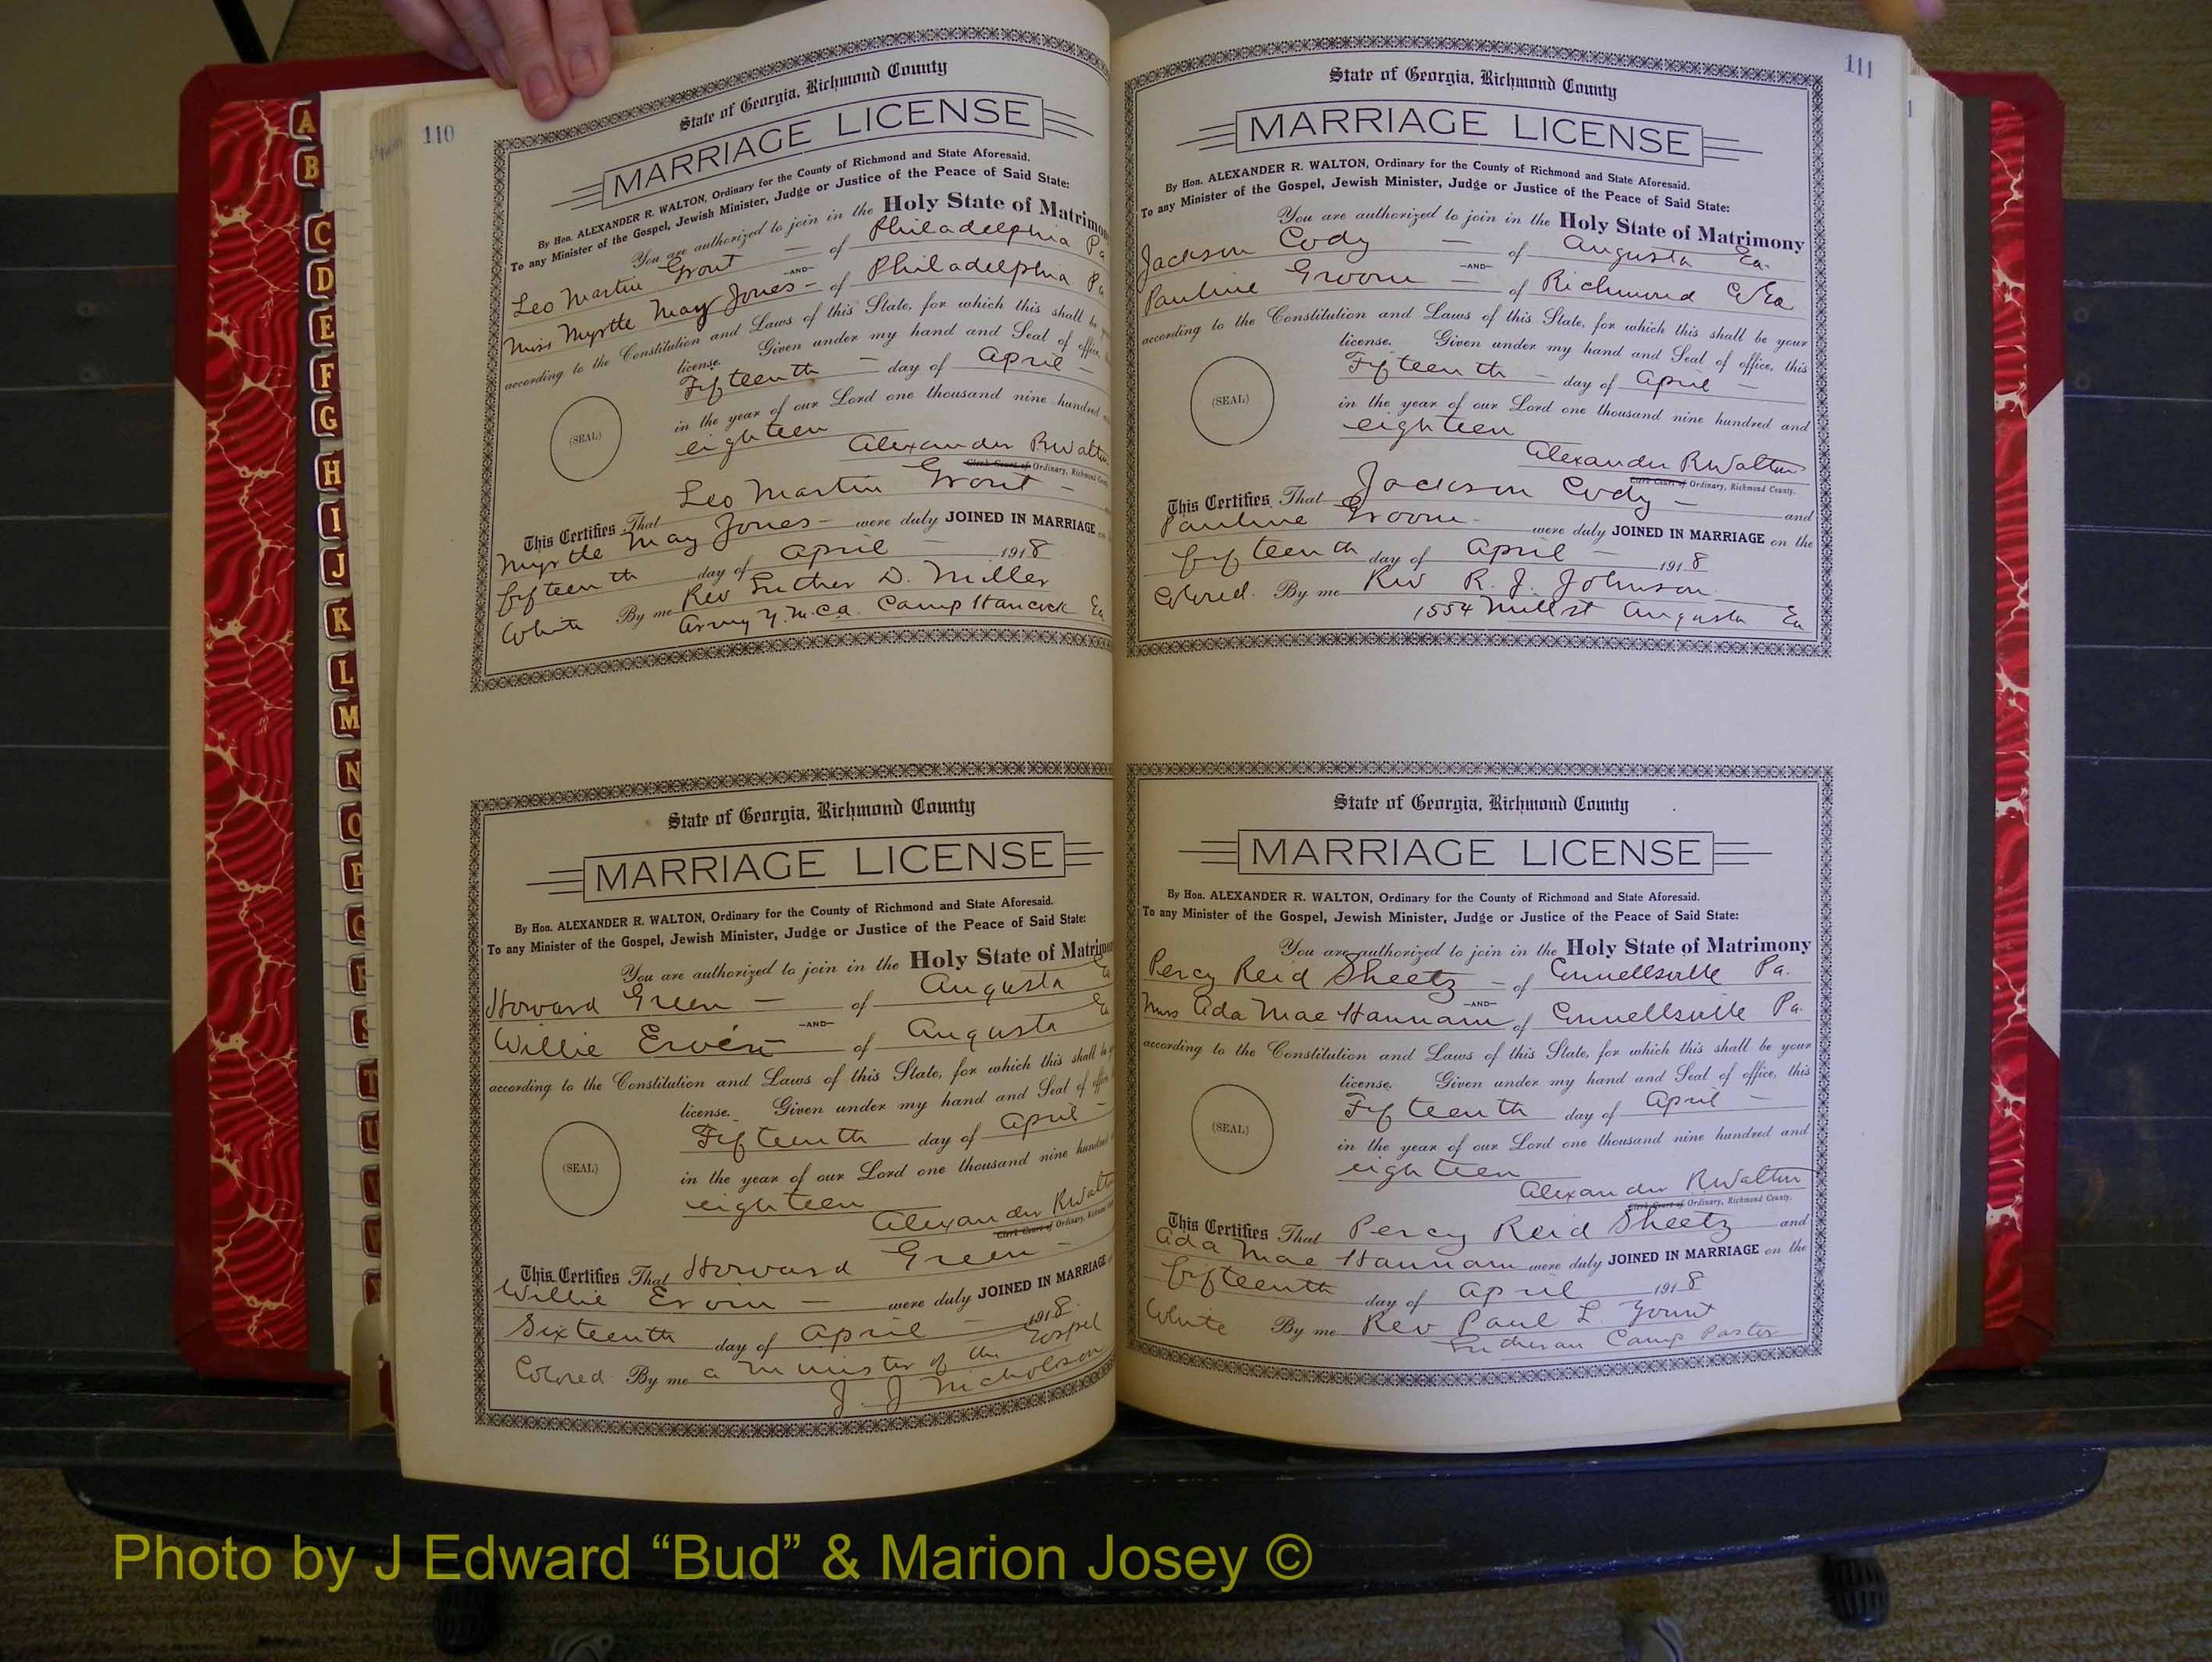 110
State of Georgia, Richmond County
MARRIAGE LICENSE
By Hon. ALEXANDER R. WALTON, Ordinary for the County of Richmond and State Aforesaid.
To any Minister of the Gospel, Jewish Minister, Judge or Justice of the Peace of Said State:
You are authorized to join in the Holy State of Matrimon
Leo Martin Grout — of Philadelphia Pa
—AND—
Miss Myrtle May Jones — of Philadelphia Pa
according to the Constitution and Laws of this State, for which this shall be
license. Given under my hand and Seal of office,
Fifteenth — day of April —
(SEAL)
in the year of our Lord one thousand nine hundred
eighteen
Alexander R Walton
Clerk Court of Ordinary, Richmond County
This Certifies That Leo Martin Grout —
Myrtle May Jones — were duly JOINED IN MARRIAGE
fifteenth day of April — 1918
White By me Rev Luther D. Miller
Army Y.M.C.A. Camp Hancock Ga
State of Georgia, Richmond County
MARRIAGE LICENSE
By Hon. ALEXANDER R. WALTON, Ordinary for the County of Richmond and State Aforesaid.
To any Minister of the Gospel, Jewish Minister, Judge or Justice of the Peace of Said State:
You are authorized to join in the Holy State of Matrimon
Howard Green — of Augusta Ga
—AND—
Willie Ervin — of Augusta Ga
according to the Constitution and Laws of this State, for which this shall be
license. Given under my hand and Seal of office
Fifteenth day of April —
(SEAL)
in the year of our Lord one thousand nine hundred
eighteen
Alexander R Walton
Clerk Court of Ordinary, Richmond
This Certifies That Howard Green —
Willie Ervin — were duly JOINED IN MARRIAGE
Sixteenth day of April — 1918
Colored By me a minister of the Gospel
J. J. Nicholson
111
State of Georgia, Richmond County
MARRIAGE LICENSE
By Hon. ALEXANDER R. WALTON, Ordinary for the County of Richmond and State Aforesaid.
To any Minister of the Gospel, Jewish Minister, Judge or Justice of the Peace of Said State:
You are authorized to join in the Holy State of Matrimony
Jackson Cody — of Augusta Ga.
—AND—
Pauline Groom — of Richmond Co Ga
according to the Constitution and Laws of this State, for which this shall be your
license. Given under my hand and Seal of office, this
Fifteenth — day of April —
(SEAL)
in the year of our Lord one thousand nine hundred and
eighteen
Alexander R Walton
Clerk Court of Ordinary, Richmond County.
This Certifies That Jackson Cody — and
Pauline Groom — were duly JOINED IN MARRIAGE on the
fifteenth day of April — 1918
Colored. By me Rev R. J. Johnson
1554 Mill st Augusta Ga
State of Georgia, Richmond County
MARRIAGE LICENSE
By Hon. ALEXANDER R. WALTON, Ordinary for the County of Richmond and State Aforesaid.
To any Minister of the Gospel, Jewish Minister, Judge or Justice of the Peace of Said State:
You are authorized to join in the Holy State of Matrimony
Percy Reid Sheetz — of Connellsville Pa.
—AND—
Miss Ada Mae Hannam of Connellsville Pa.
according to the Constitution and Laws of this State, for which this shall be your
license. Given under my hand and Seal of office, this
Fifteenth day of April —
(SEAL)
in the year of our Lord one thousand nine hundred and
eighteen
Alexander R Walton
Clerk Court of Ordinary, Richmond County.
This Certifies That Percy Reid Sheetz and
Ada Mae Hannam were duly JOINED IN MARRIAGE on the
fifteenth day of April 1918
White By me Rev Paul L. Yount
Lutheran Camp Pastor
A
B
C
D
E
F
G
H
I
J
K
L
M
N
O
P
Q
R
S
T
U
V
W
Photo by J Edward “Bud” & Marion Josey ©